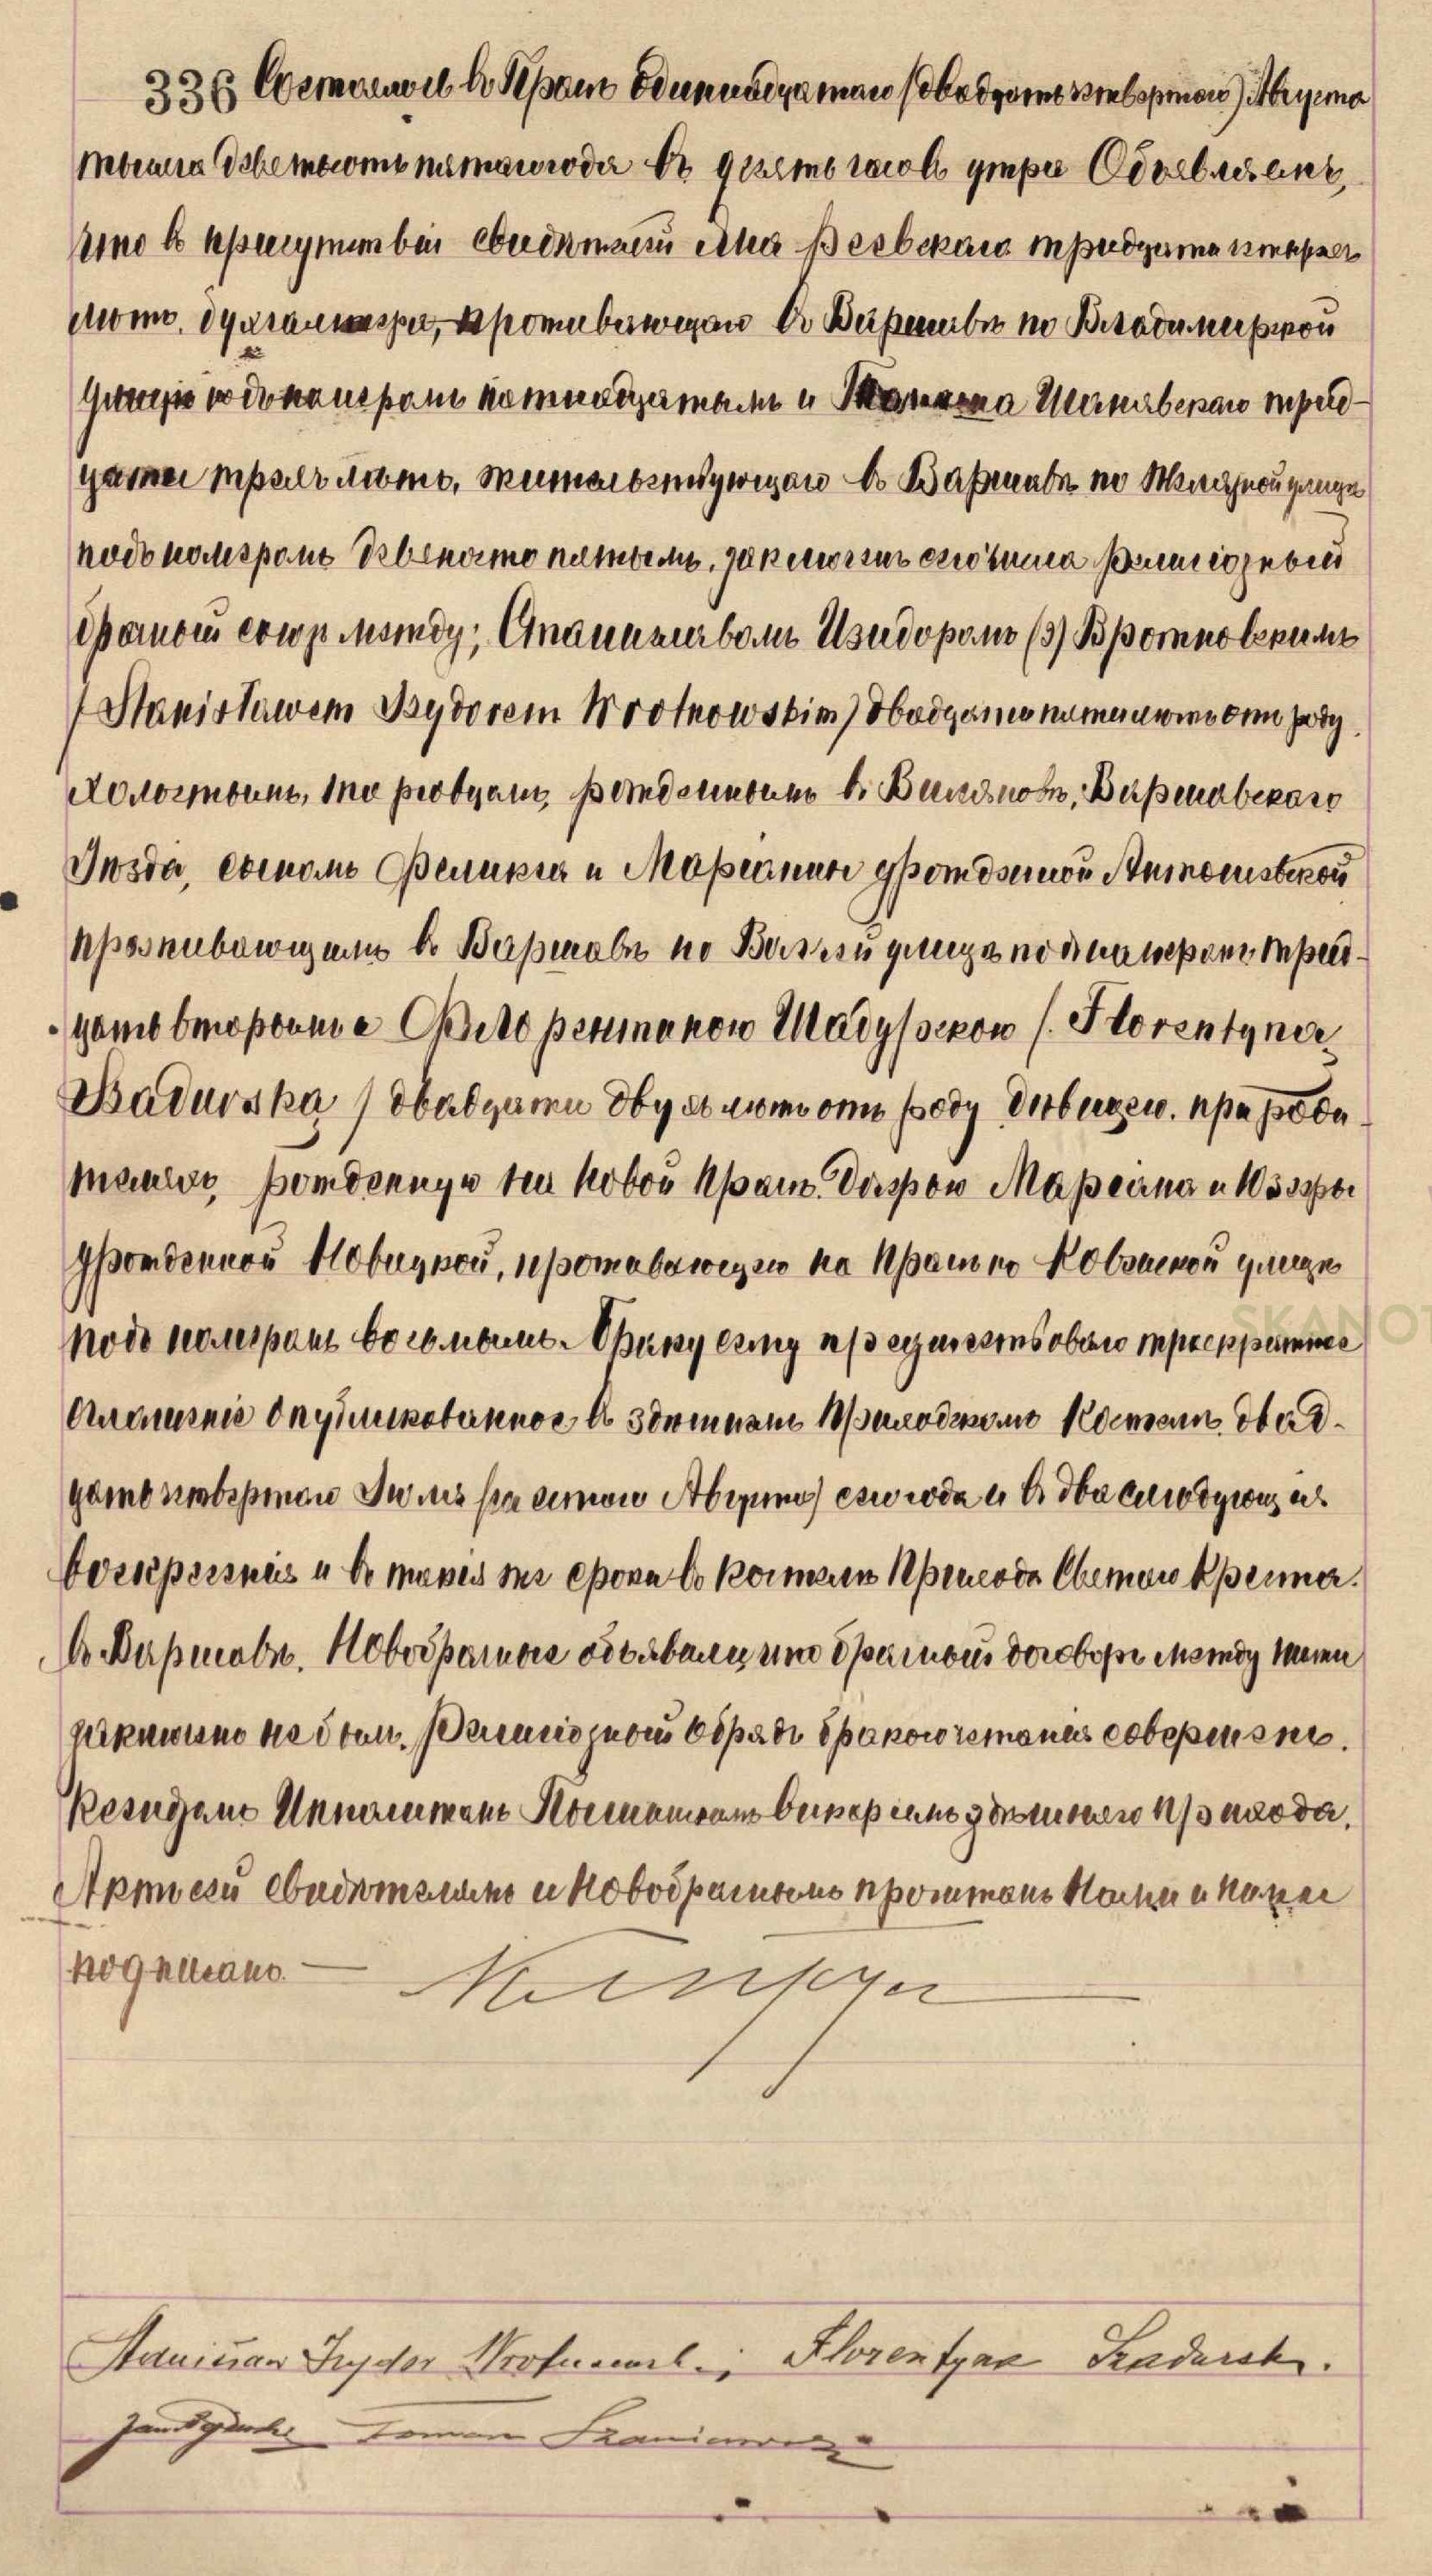 336 Состоялось въ Прагѣ одиннадцатаго (двадцать четвертаго) Августа
тысяча девятьсотъ пятаго года въ десять часовъ утра Объявляемъ,
что въ присутствіи свидѣтелей Яна тридцати четырехъ
лѣтъ, бухгалтера, проживающаго въ Варшавѣ по Владимірской
улицѣ подъ номеромъ пятнадцатымъ и Шанявскаго трид-
цати трехъ лѣтъ, жительствующаго въ Варшавѣ по Желязной улицѣ
подъ номеромъ девяносто пятымъ, заключенъ сего числа религіозный
брачный союзъ между: Станиславомъ Изидоромъ (2) Вротновскимъ
/Stanisławem Izydorem Wrotnowskim/ двадцати пяти лѣтъ отъ роду
холостымъ, рожденнымъ въ Виляновѣ, Варшавскаго
Уѣзда, сыномъ Феликса и Маріанны урожденной
проживающимъ въ Варшавѣ по улицѣ подъ номеромъ трид-
цать вторымъ и Флорентиною Шадурскою /Florentyna
Szadurska/ двадцати двухъ лѣтъ отъ роду дѣвицею, при роди-
теляхъ, рожденную на Новой Прагѣ, дочерью Маріана и Юзефы
урожденной Новицкой, проживающую на Прагѣ по Ковенской улицѣ
подъ номеромъ восьмымъ. Браку сему предшествовало троекратное
оглашеніе опубликованное въ здѣшнемъ Приходскомъ Костелѣ двад-
цать четвертаго Іюля (шестаго Августа) сего года и въ два слѣдующія
воскресенія и въ такія же сроки въ костелѣ Прихода Святаго Креста
въ Варшавѣ. Новобрачные объявили, что брачный договоръ между ними
заключенъ не былъ. Религіозный обрядъ бракосочетанія совершенъ
Ксендзомъ Ипполитомъ викаріемъ здѣшняго Прихода.
Актъ сей свидѣтелямъ и новобрачнымъ прочитанъ Нами и ними
подписанъ. —
Stanisław Izydor Wrotnowski; Florentyna Szadurska.
Jan Roman Szaniawski